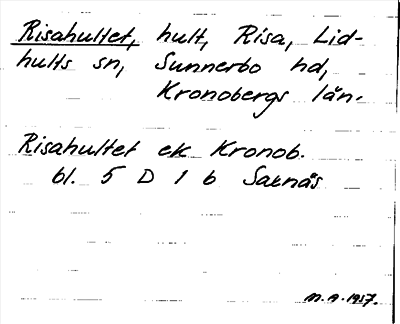 Risahultet, hult, Risa, Lid-
hults sn, Sunnerbo hd,
Kronobergs län.
Risahultet ek Kronob.
bl. 5 D 1 b Saknås
M.A. 1957.